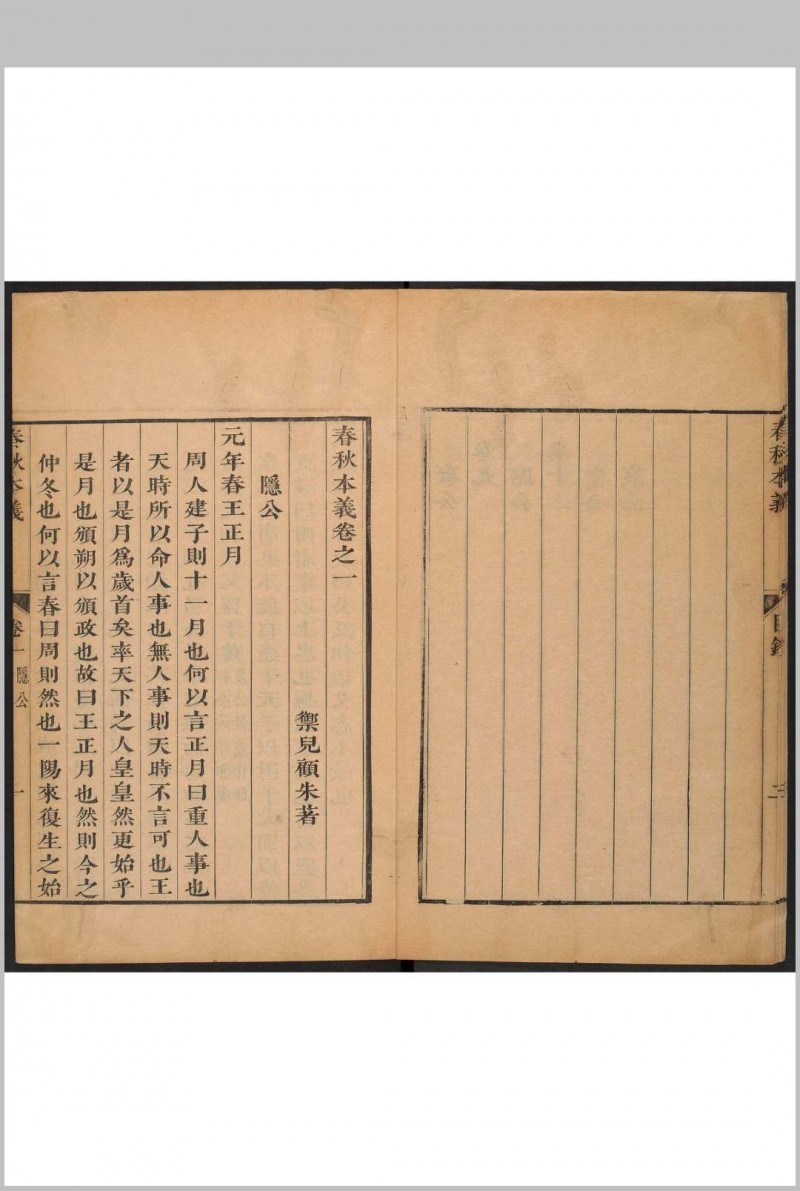 春秋本義
目錄
春秋本義卷之一
禦兒顧朱著
隱公
元年春王正月
周人建子則十一月也何以言正月曰重人事也
天時所以命人事也無人事則天時不言可也王
者以是月爲歲首矣率天下之人皇皇然更始乎
是月也頒朔以頒政也故曰王正月也然則今之
仲冬也何以言春曰周則然也一陽來復生之始
春秋本義
卷一隱公
一